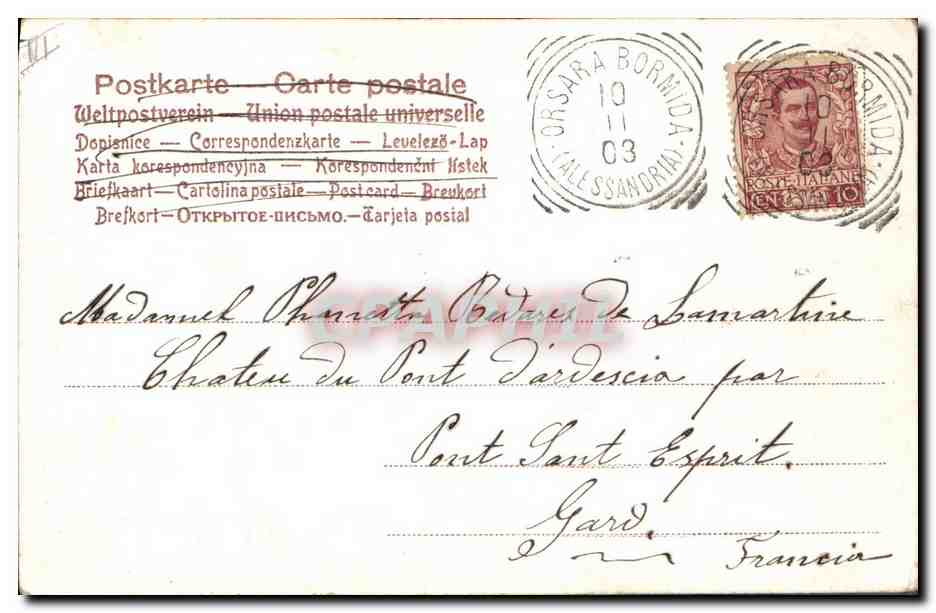 VI
Postkarte — Carte postale
Weltpostverein — Union postale universelle
Dopisnice — Correspondenzkarte — Levelező-Lap
Karta korespondencyjna — Korespondenční lístek
Briefkaart — Cartolina postale — Post card — Brevkort
Brefkort — Открытое-письмо. — Tarjeta postal
ORSARA BORMIDA
(ALESSANDRIA)
10
11
03
POSTE ITALIANE
CENT. 10
CPAPHIL
de Lamartine
Chateu du Pont d'ardescia par
Pont Sant Esprit.
Gard.
Francia